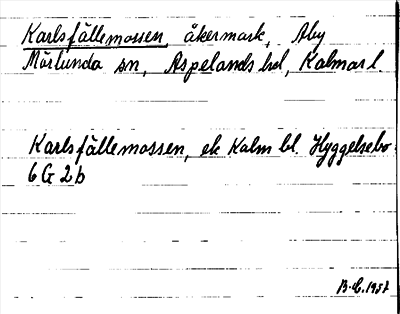 Karlsfällemossen, åkermark, Åby
Mörlunda sn, Aspelands hd, Kalmar l.
Karlsfällemossen, ek Kalm bl. Hyggelsebo
6 G 2 b
B.C. 1957